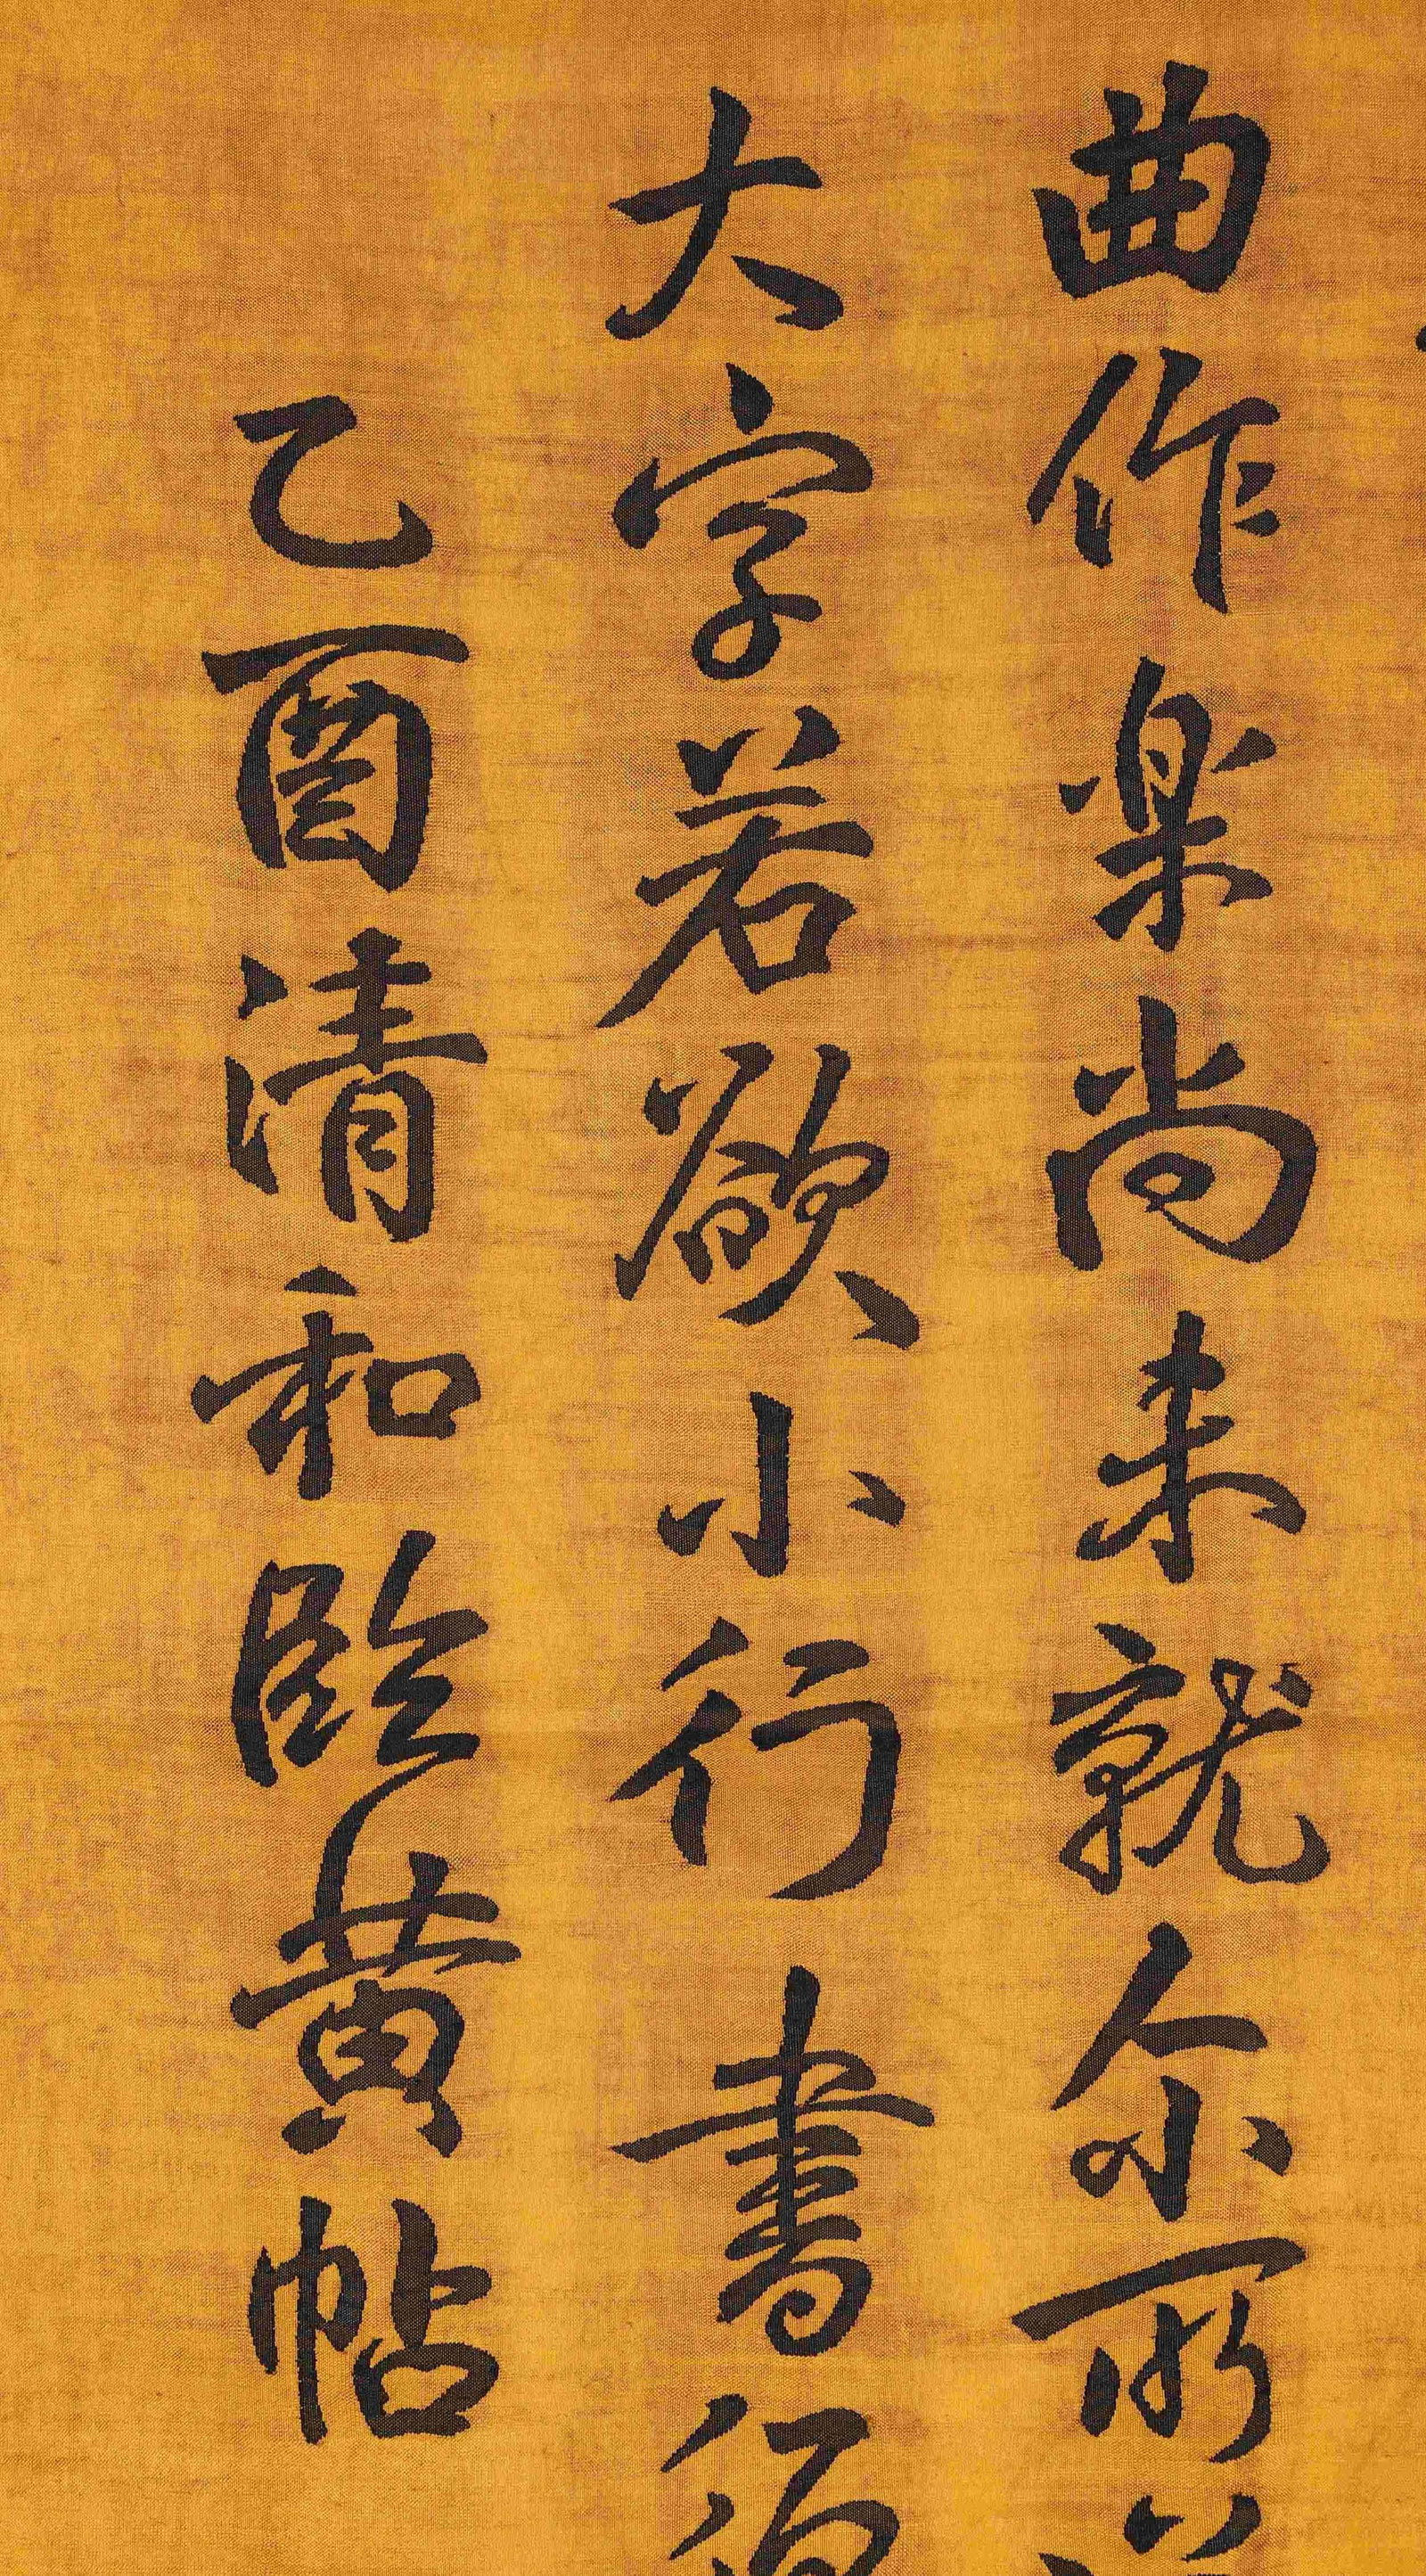 曲作楽尚未就尒所
大字若欲小行書
乙酉清和臨黄帖